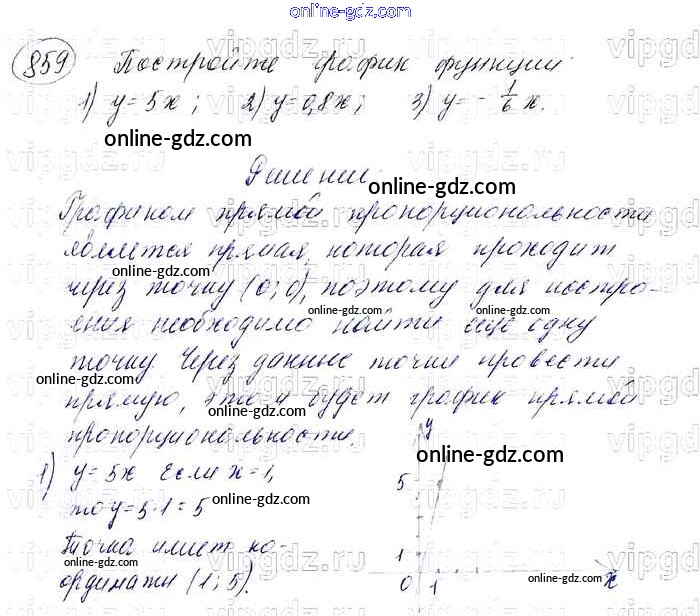 online-gdz.com
859 Постройте график функции
1) y = 5x; 2) y = 0,8x; 3) y = - 1/6 x.
online-gdz.com
Решение.
online-gdz.com
Графиком прямой пропорциональности
является прямая, которая проходит
online-gdz.com
через точку (0; 0), поэтому для постро-
online-gdz.com
ения необходимо найти еще одну
точку. Через данные точки провести
online-gdz.com
online-gdz.com
прямую, это и будет график прямой
пропорциональности.
y
online-gdz.com
1) y = 5x Если x = 1,
5
то y = 5·1 = 5
online-gdz.com
Точка имеет ко-
1
ординаты (1; 5).
online-gdz.com
0 1
online-gdz.com
x
vipgdz.ru